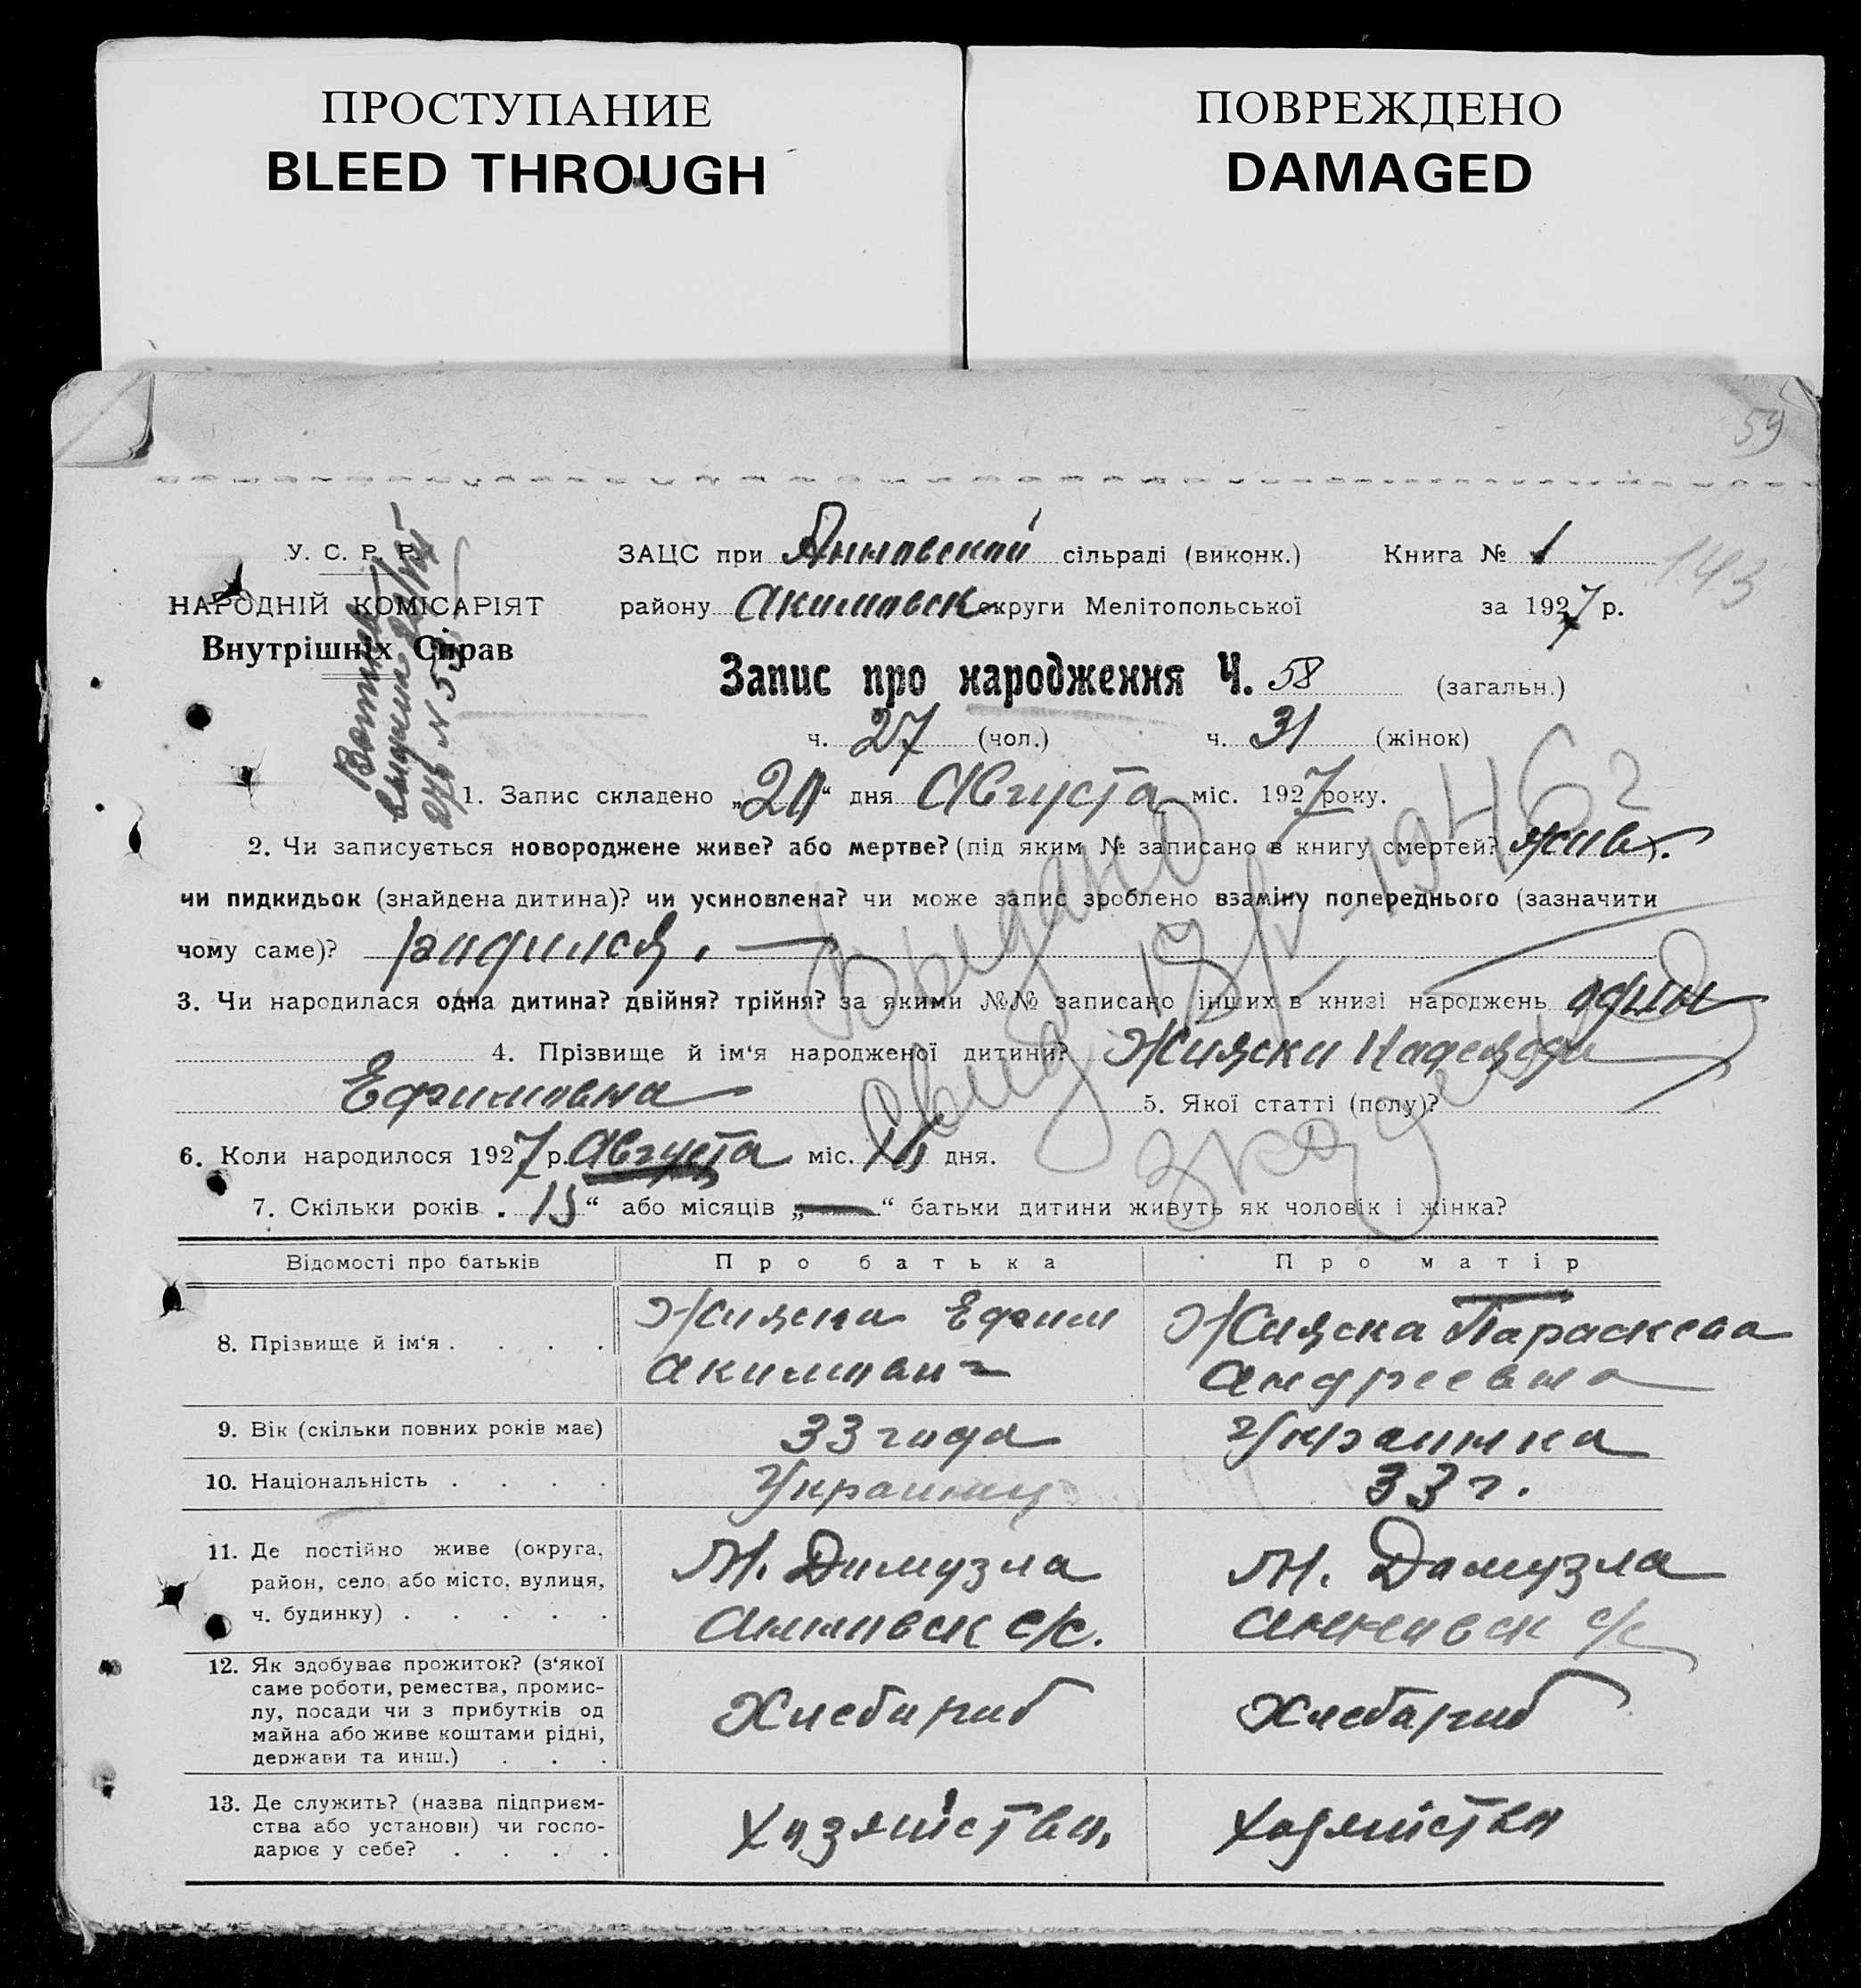 ПРОСТУПАНИЕ
BLEED THROUGH
ПОВРЕЖДЕНО
DAMAGED
59
143
У. С. Р. Р.
НАРОДНІЙ КОМІСАРІЯТ
Внутрішніх Справ
ЗАЦС при Анновской сільраді (виконк.) Книга № 1
району Акимовск округи Мелітопольської за 1927 р.
Запис про народження Ч. 58 (загальн.)
ч. 27 (чол.) ч. 31 (жінок)
1. Запис складено „20“ дня Августа міс. 1927 року.
2. Чи записується новороджене живе? або мертве? (під яким № записано в книгу смертей? жив).
чи пидкидьок (знайдена дитина)? чи усиновлена? чи може запис зроблено взаміну попереднього (зазначити
чому саме)? родился.
3. Чи народилася одна дитина? двійня? трійня? за якими №№ записано інших в книзі народжень один
4. Прізвище й ім‘я народженої дитини?
Ефимовна 5. Якої статті (полу)?
6. Коли народилося 1927 р. Августа міс. дня.
7. Скільки років „15“ або місяців „—“ батьки дитини живуть як чоловік і жінка?
Выдано
1946 г
Відомості про батьків Про батька Про матір
8. Прізвище й ім‘я . . . . Ефим Параскева
Акимович Андреевна
9. Вік (скільки повних років має) 33 года Украинка
10. Національність . . . . Украинец 33 г.
11. Де постійно живе (округа,
район, село або місто, вулиця,
ч. будинку) . . . . .
Анновск с/с. Анновск с/с
12. Як здобуває прожиток? (з‘якої
саме роботи, ремества, промис-
лу, посади чи з прибутків од
майна або живе коштами рідні,
держави та инш.) . . .
Хлебороб Хлебороб
13. Де служить? (назва підприєм-
ства або установи) чи госпо-
дарює у себе? . . . .
Хозяйство Хозяйство